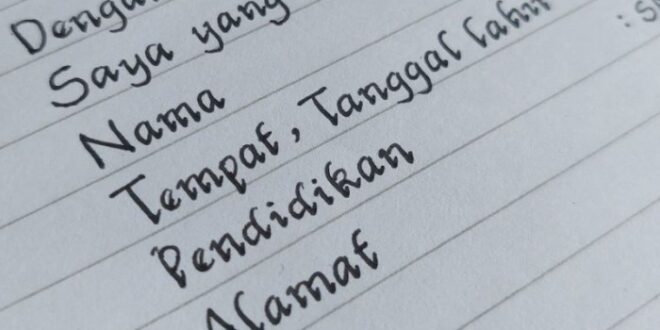 Dengan
Saya yang
Nama
Tempat, Tanggal lahir : S
Pendidikan
Alamat